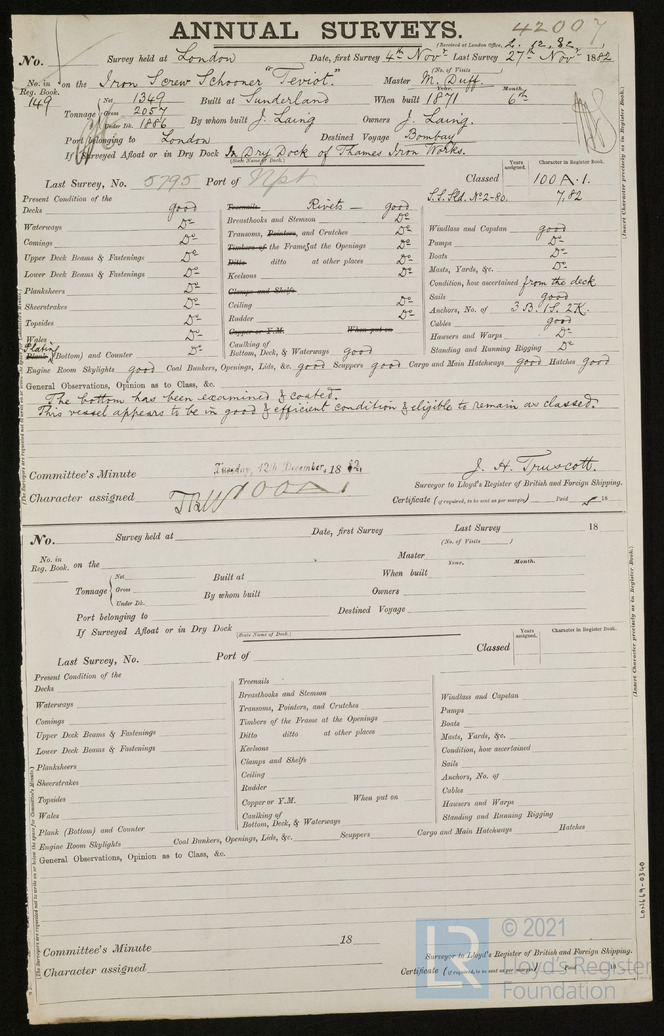 ANNUAL SURVEYS.
42007
(Received at London Office,
No. Survey held at London Date, first Survey 4th Novr Last Survey 27th Novr 1882
(No. of Visits )
No. in Reg. Book. on the Iron Screw Schooner "Teviot." Master M. Duff.
149
Tonnage Net 1349 Built at Sunderland When built 1871 Year. Month. 6th
Gross 2057
Under Dk. 1886 By whom built J. Laing Owners J. Laing.
Port belonging to London Destined Voyage Bombay
If Surveyed Afloat or in Dry Dock In Dry Dock of Thames Iron Works.
(State Name of Dock.)
Last Survey, No. 5795 Port of Npt Classed Years assigned. Character in Register Book. 100 A.1.
S.S. Sld. No 2-80. 7,82
Present Condition of the
Decks good
Waterways Do
Comings Do
Upper Deck Beams & Fastenings Do
Lower Deck Beams & Fastenings Do
Planksheers Do
Sheerstrakes Do
Topsides Do
Wales Do
Plating
Plank (Bottom) and Counter Do
Treenails Rivets — good
Breasthooks and Stemson Do
Transoms, Pointers, and Crutches Do
Timbers of the Frames at the Openings Do
Ditto ditto at other places Do
Keelsons Do
Clamps and Shelfs
Ceiling Do
Rudder Do
Copper or Y.M. When put on
Caulking of Bottom, Deck, & Waterways good
Windlass and Capstan good
Pumps Do
Boats Do
Masts, Yards, &c. Do
Condition, how ascertained from the deck
Sails good
Anchors, No. of 3 B. 1 S. 2 K.
Cables good
Hawsers and Warps Do
Standing and Running Rigging Do
Engine Room Skylights good Coal Bunkers, Openings, Lids, &c. good Scuppers good Cargo and Main Hatchways good Hatches good
General Observations, Opinion as to Class, &c.
The bottom has been examined & coated.
This vessel appears to be in good & efficient condition & eligible to remain as classed.
Committee's Minute Tuesday, 12th December, 1882.
J. H. Truscott.
Surveyor to Lloyd's Register of British and Foreign Shipping.
Character assigned 100 A 1
Certificate (if required, to be sent as per margin) Paid 18
(Insert Character precisely as in Register Book.)
No. Survey held at Date, first Survey Last Survey 18
(No. of Visits )
No. in Reg. Book. on the Master
Tonnage Net Built at When built Year. Month.
Gross
Under Dk. By whom built Owners
Port belonging to Destined Voyage
If Surveyed Afloat or in Dry Dock
(State Name of Dock.)
Last Survey, No. Port of Classed Years assigned. Character in Register Book.
Present Condition of the
Decks
Waterways
Comings
Upper Deck Beams & Fastenings
Lower Deck Beams & Fastenings
Planksheers
Sheerstrakes
Topsides
Wales
Plank (Bottom) and Counter
Treenails
Breasthooks and Stemson
Transoms, Pointers, and Crutches
Timbers of the Frame at the Openings
Ditto ditto at other places
Keelsons
Clamps and Shelfs
Ceiling
Rudder
Copper or Y.M. When put on
Caulking of Bottom, Deck, & Waterways
Windlass and Capstan
Pumps
Boats
Masts, Yards, &c.
Condition, how ascertained
Sails
Anchors, No. of
Cables
Hawsers and Warps
Standing and Running Rigging
Engine Room Skylights Coal Bunkers, Openings, Lids, &c. Scuppers Cargo and Main Hatchways Hatches
General Observations, Opinion as to Class, &c.
Committee's Minute 18
Surveyor to Lloyd's Register of British and Foreign Shipping.
Character assigned
Certificate (if required, to be sent as per margin) Paid 18
(Insert Character precisely as in Register Book.)
LON669-0360
LR
© 2021
Lloyd's Register
Foundation